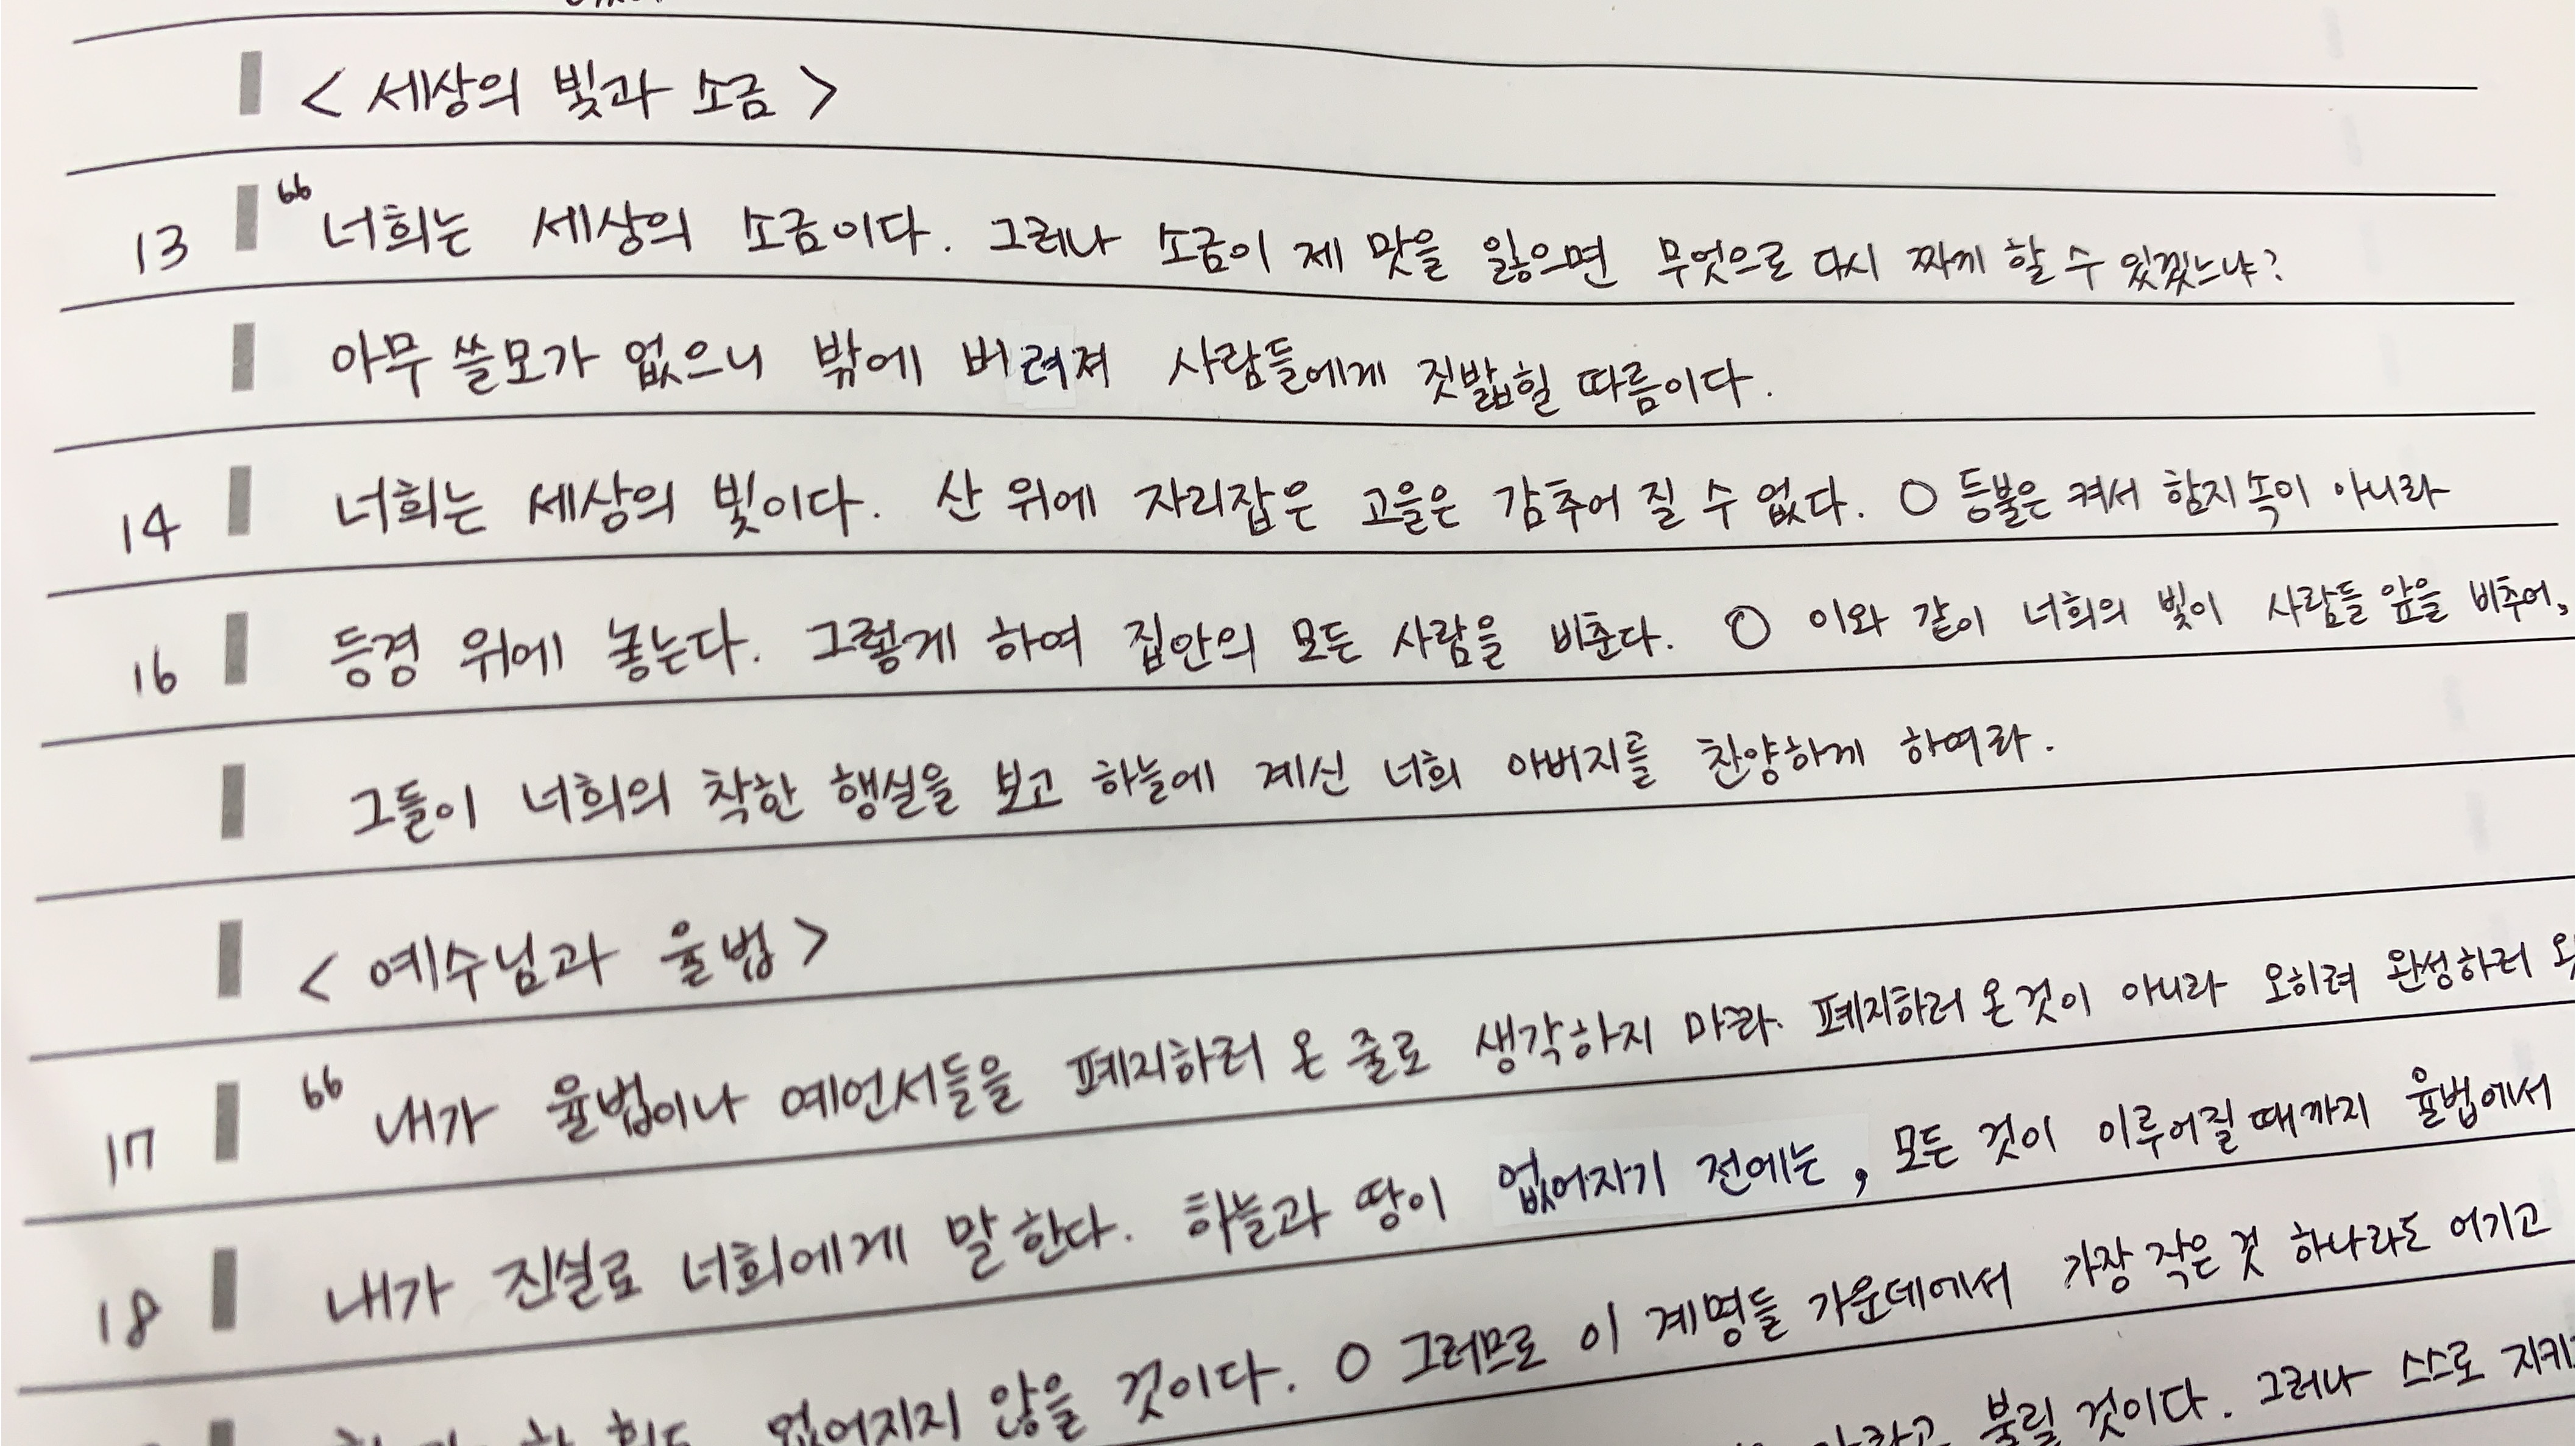 < 세상의 빛과 소금 >
13 “너희는 세상의 소금이다. 그러나 소금이 제 맛을 잃으면 무엇으로 다시 짜게 할 수 있겠느냐?
아무 쓸모가 없으니 밖에 버려져 사람들에게 짓밟힐 따름이다.
14 너희는 세상의 빛이다. 산 위에 자리잡은 고을은 감추어 질 수 없다. O 등불은 켜서 함지 속이 아니라
16 등경 위에 놓는다. 그렇게 하여 집안의 모든 사람을 비춘다. O 이와 같이 너희의 빛이 사람들 앞을 비추어,
그들이 너희의 착한 행실을 보고 하늘에 계신 너희 아버지를 찬양하게 하여라.
< 예수님과 율법 >
17 “내가 율법이나 예언서들을 폐지하러 온 줄로 생각하지 마라. 폐지하러 온 것이 아니라 오히려 완성하러
18 내가 진실로 너희에게 말한다. 하늘과 땅이 없어지기 전에는, 모든 것이 이루어질 때까지 율법에서
없어지지 않을 것이다. O 그러므로 이 계명들 가운데에서 가장 작은 것 하나라도 어기고
불릴 것이다. 그러나 스스로